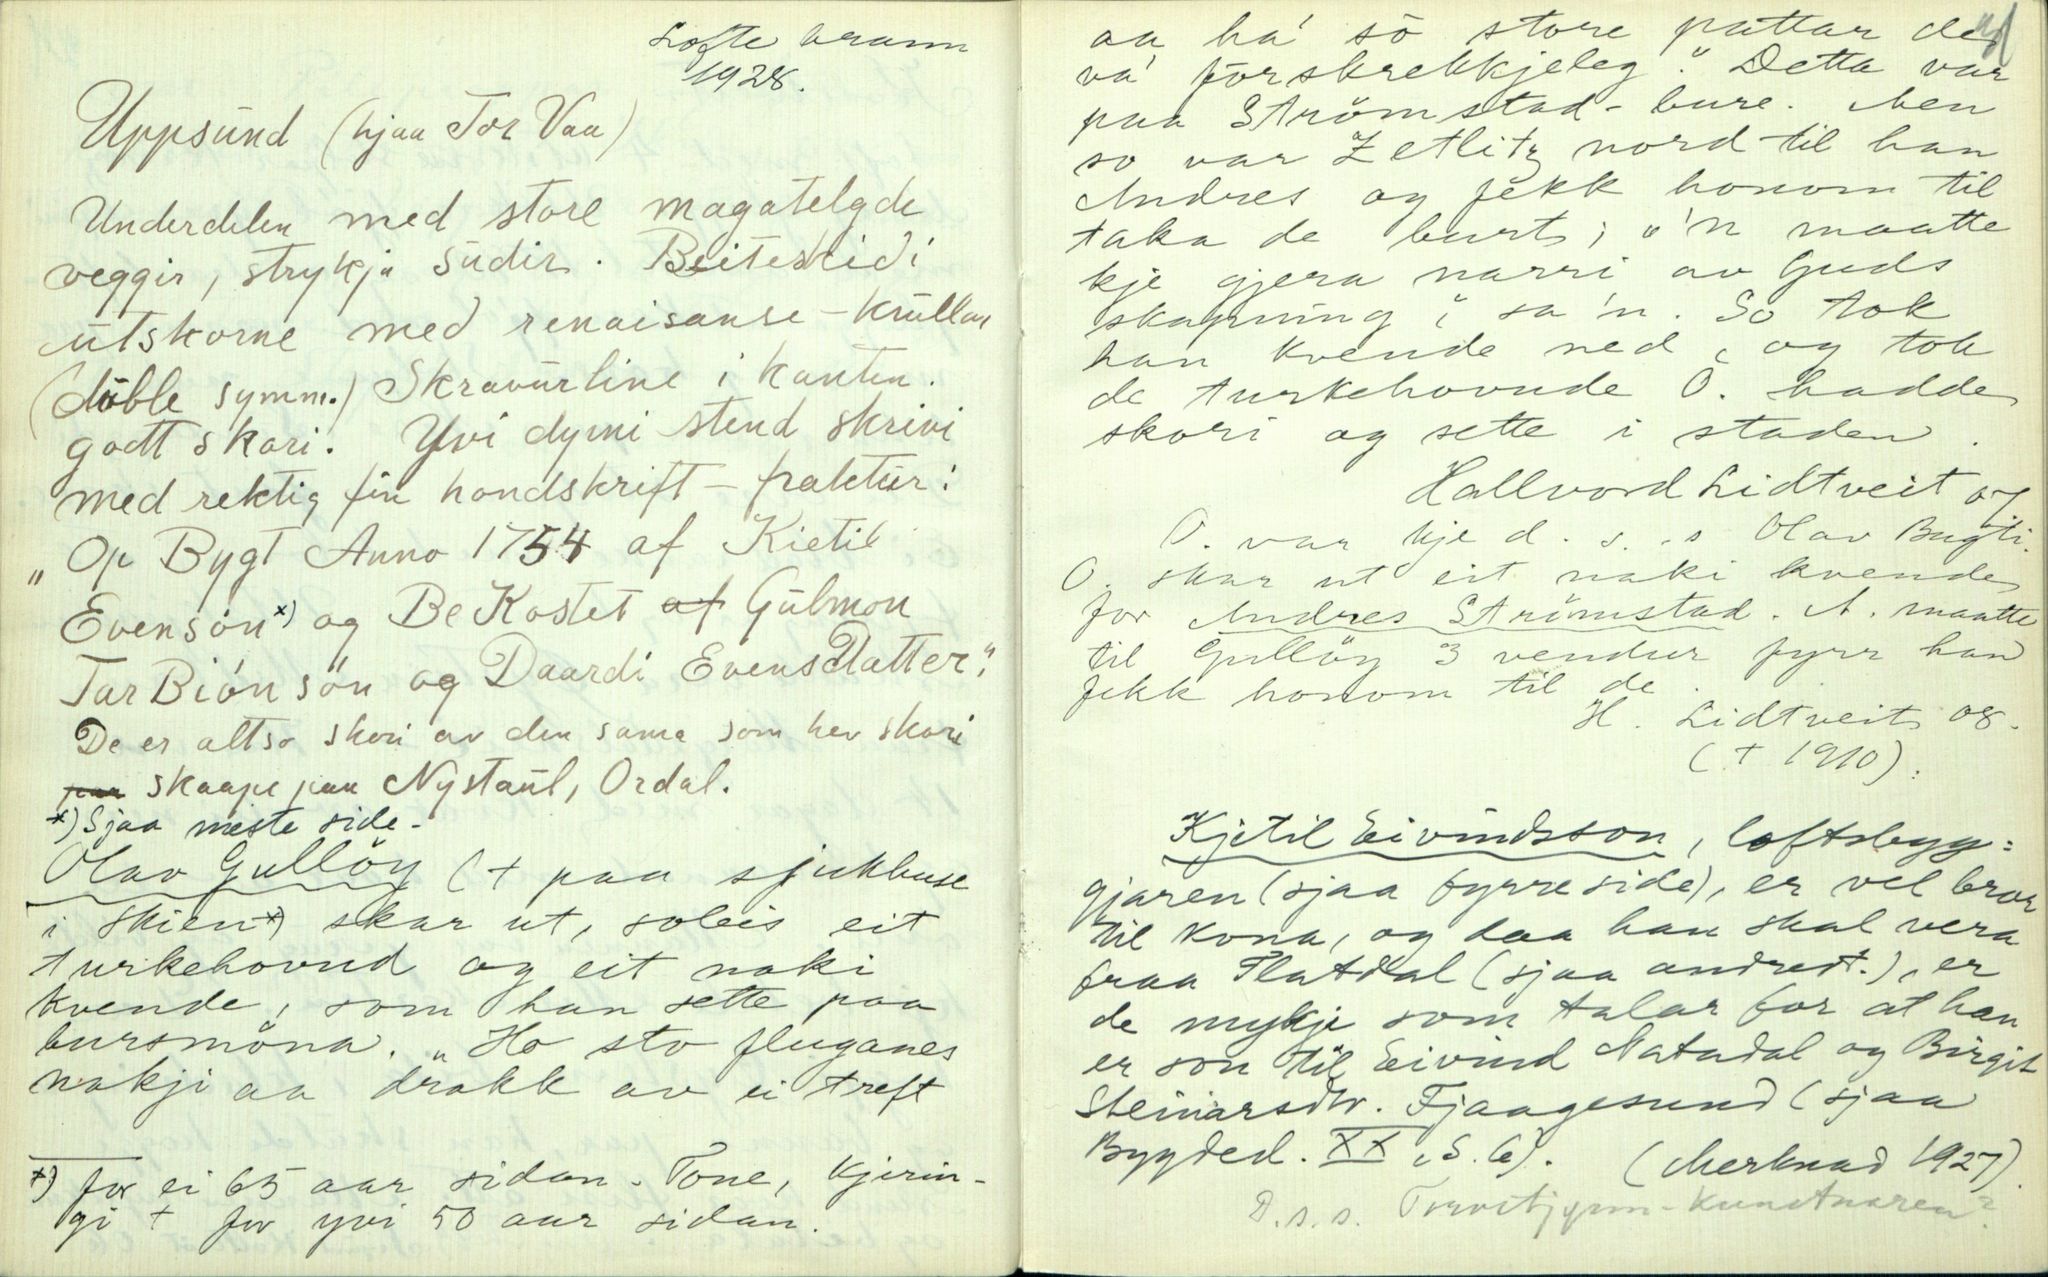 Lofte brann
1928.
Uppsund (hjaa Tor Vaa)
Underdelen med store magatelgde
veggir, strykja sudir. Beiteskidi
utskorne med renaisanse-krullar
(duble symm.) Skravurline i kanten.
godt skori. Yvi dyrni stend skrivi
med rektig fin hondskrift - fraktur:
"Op Bygt Anno 1754 af Kietil
Evensön x) og BeKostet af Gulmon
TarBiónsön og Daardi EvensDatter".
De er altso skori av den sama som hev skori
paa skaape paa Nystaul, Ordal.
x) Sjaa næste side.
Olav Gullöy († paa sjukhuse
i Skien x) skar ut, soleis eit
turkehovud og eit naki
kvende, som han sette paa
bursmöna. "Ho sto fluganes
nakji aa drakk av ei treft
x) for ei 65 aar sidan. Tone, kjerin-
gi † for yvi 50 aar sidan.
aa ha' so store pattar de
va' forskrekkjeleg." Detta var
paa Strömstad-bure. Men
so var Zetlitz nord til han
Andres og fekk honom til
taka de burt; "'n maatte
kje gjera narri av Guds
skapning", sa 'n. So tok
han kvende ned, og tok
de turkehovude O. hadde
skori og sette i staden.
Hallvord Lidtveit og
O. var kje d. s. s. Olav Bugti.
O. skar ut eit naki kvende
for Andres Strömstad. A. maatte
til Gullöy 3 vendur fyrr han
fekk honom til de.
H. Lidtveit og.
(† 1910).
Kjetil Eivindsson, loftsbyg=
gjaren (sjaa fyrre side), er vel bror
til kona, og daa han skal vera
fraa Flatdal (sjaa andrest.), er
de mykje som talar for at han
er son til Eivind Natadal og Birgit
Steinarsdtr. Fjaagesund (sjaa
Bygded. XX, S. 6). (Merknad 1927).
D.s.s. Torvetjynn-kunstnaren?